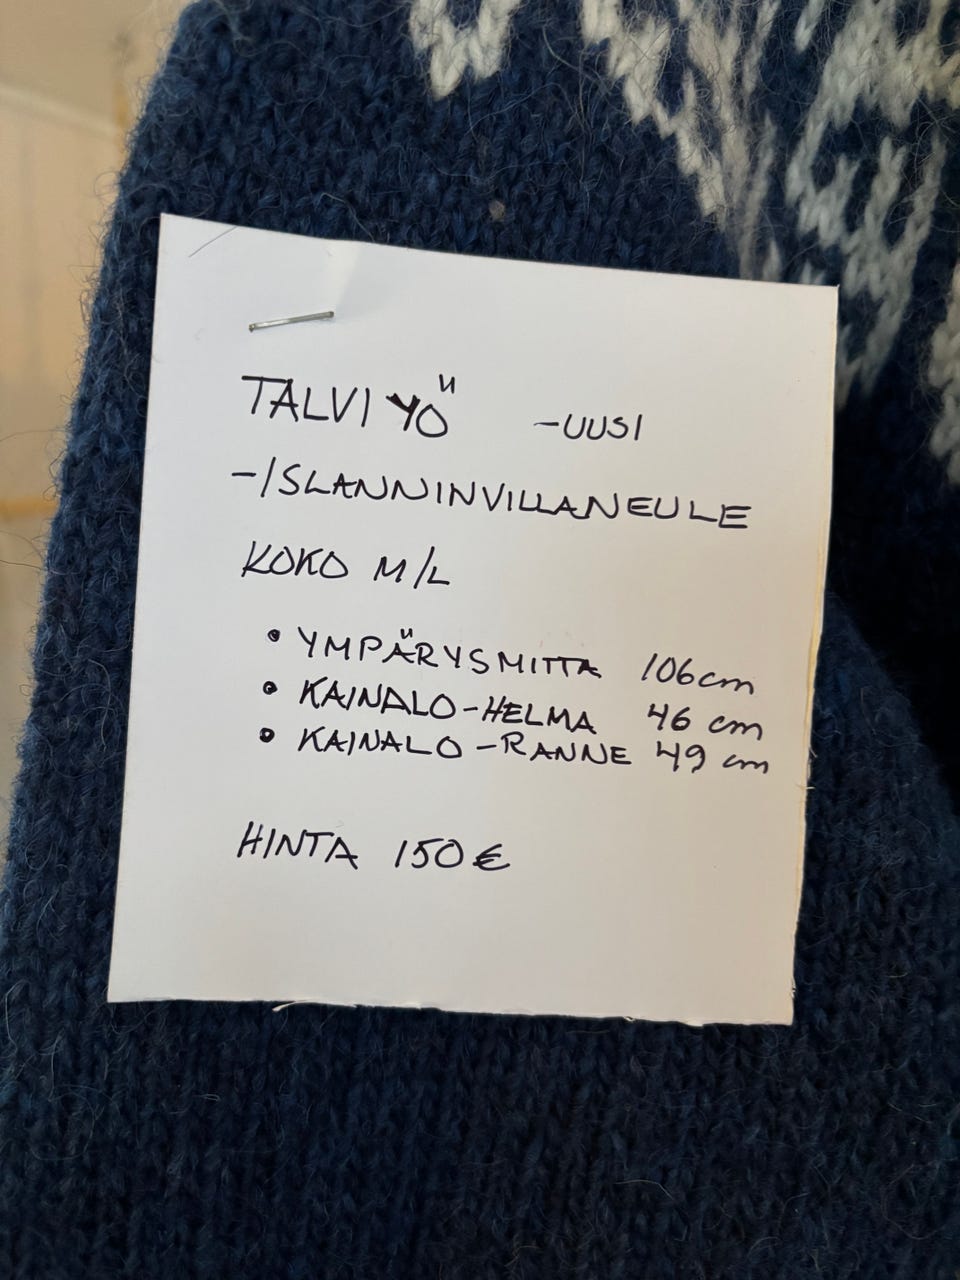 TALVIYÖ -UUSI
-ISLANNINVILLANEULE
KOKO M/L
• YMPÄRYSMITTA 106cm
• KAINALO-HELMA 46 cm
• KAINALO-RANNE 49 cm
HINTA 150€